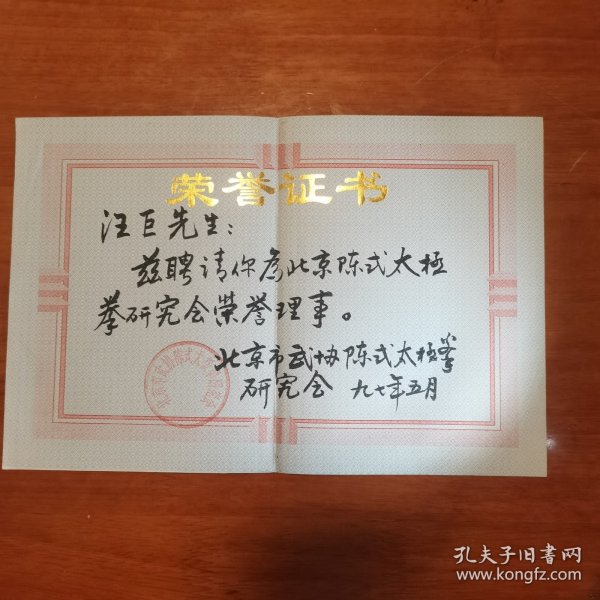 荣誉证书
汪巨先生:
兹聘请你为北京陈式太極
拳研究会荣誉理事。
北京市武协陈式太极拳
研究会 九七年五月
孔夫子旧书网
www.kongfz.com